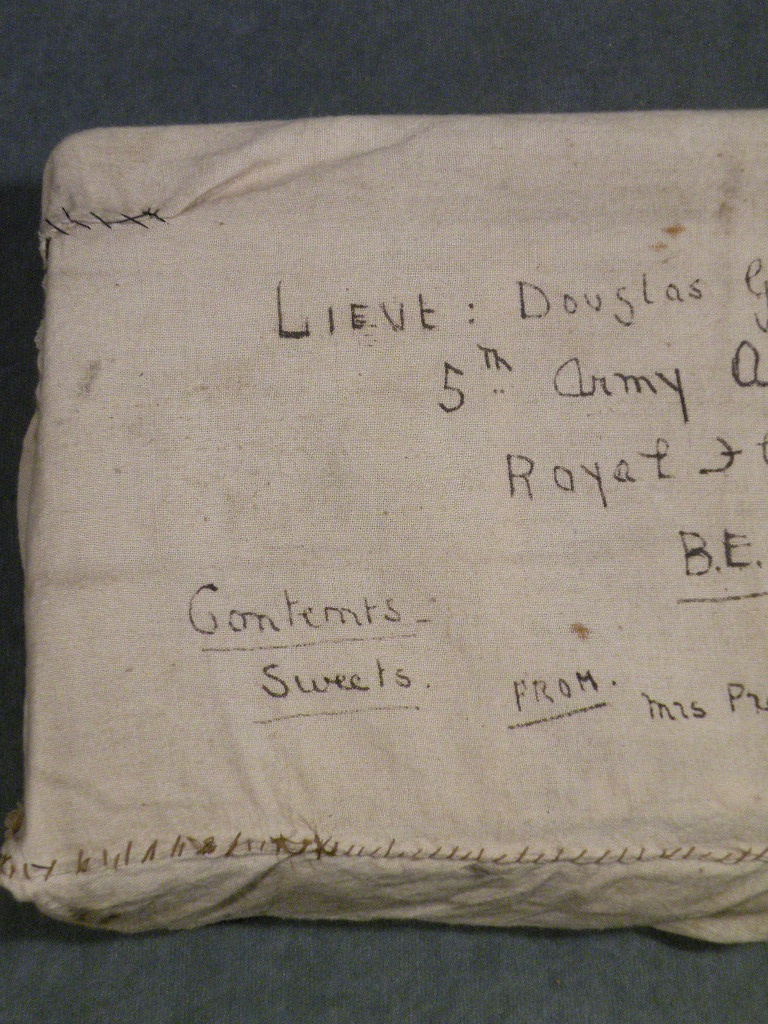 LIEUt: Douglas G
5th Army A
Royal Fl
B.E.
Contents -
Sweets.
FROM. Mrs Pr